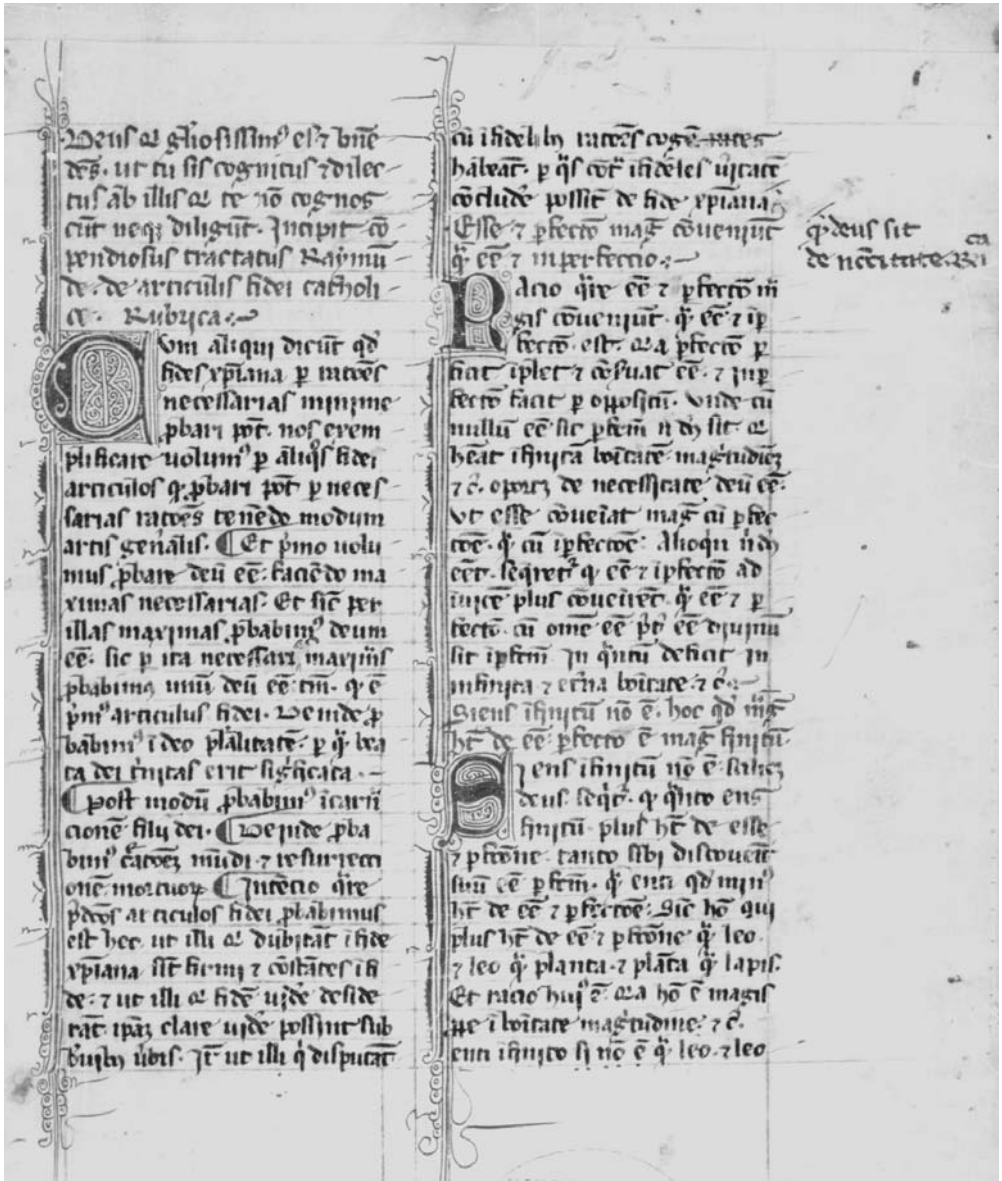 Deus qͥ gl'iosissimꝰ es ⁊ bn̄e
dc̄s. ut tu sis cognitus ⁊ dilec
tus ab illis qͥ te nō cognos
cūt neqꝫ diligūt. Incipit cō
pendiosus tractatus Raymū
de. de articulis fidei catholi
ce. Rubrica.
Cum aliqui dicūt qd̄
fides xp̄iana ꝑ racōēs
necessarias minime
ꝓbari pōt. nos exem
plificare uolumꝰ ꝑ aliqͦs fidei
articulos qͥ ꝓbari pn̄t ꝑ neces
sarias racōēs tenēdo modum
artis gen̄alis. ¶ Et pͥmo uolu
mus ꝓbare deū eē: faciēdo ma
ximas necessarias. Et sic̄ per
illas maximas ꝓbabimꝰ deum
eē. sic ꝑ ita necessarꝰ maximis
ꝓbabimꝰ unū deū eē tm̄. qͥ ē
pͥmꝰ articulus fidei. Deinde ꝓ
babimꝰ ī deo pl'alitatē. ꝑ qͣ bea
ta dei tͥnitas erit sigͥficata.
¶ Post modū ꝓbabimꝰ īcarna
cionē filii dei. ¶ Deinde ꝓba
bimꝰ cͣacōeꝫ mūdi ⁊ resurrecti
onē mortuoꝝ ¶ Intēcio qͣre
p̄dc̄os articulos fidei ꝓbabimus
est hec. ut illi qͥ dubitāt ī fide
xp̄iana sīt firmi ⁊ cōstātes ī fi
de. ⁊ ut illi qͥ fidē uid'e deside
rāt ip̄aꝫ clare uid'e possint sub
bͥuibꝫ ūbis. Itē ut illi qͥ disputāt
cū īfidelibꝫ racōēs cogē
hābeāt. ꝑ qͣs cotͣ īfideles ūitatē
cōclud'e possīt de fide xp̄iana.
Esse ⁊ ꝑfecto maḡ cōueniūt
qͣ eē ⁊ inperfeccio.
Racio qͣre eē ⁊ ꝑfectō m
gis cōueniūt. qͣ eē ⁊ īꝑ
fectō. est. qͥa ꝑfectō ꝑ
ficit īplet ⁊ cōs̄uat eē. ⁊ īnꝑ
fectō facit ꝑ oꝓositū. vnde cū
nullū eē sit ꝑfctm̄ nͥ dꝰ sit qͥ
hēat īfinitā bōitatē magͥtudīeꝫ
⁊ c̄. oportꝫ de necessitate deū eē.
Vt esse cōueīat maḡ cū ꝑfec
cōē. qͣ cū īꝑfectōē. Alioqͥn nͥ dꝰ
eēt. seqͥretͬ qͥ eē ⁊ īꝑfectō ad
īuicē plus cōueirēt. qͣ eē ⁊ ꝑ
fectō. cū omē eē pͥt' eē diuinū
sit īꝑfctm̄ In qͣntū deficit In
infinita ⁊ etͥna bōitate ⁊ c̄.
Si ens īfinitū nō ē. hoc qd̄ maḡ
hꝫ de eē ꝑfecto ē maḡ finitū.
Si ens īfinitū nō ē. scilicꝫ
deus. seqͥtͬ. qͥ qͣnto ens
finitū plus hꝫ de esse
⁊ ꝑfcōne tanto sibi discōueīt
suū eē ꝑfctm̄. qͣ enti qd̄ minꝰ
hꝫ de eē ⁊ ꝑfectōē. Sic̄ hō qui
plus hꝫ de eē ⁊ ꝑfcōne qͣ leo.
⁊ leo qͣ planta. ⁊ plāta qͣ lapis.
Et racio huiꝰ ē. qͥa hō ē magis
ꝓpe ī bōitate magͥtudine. ⁊ c̄.
enti īfinito si nō ē qͣ leo. ⁊ leo
qͥ deus sit
de neccitate. Rā